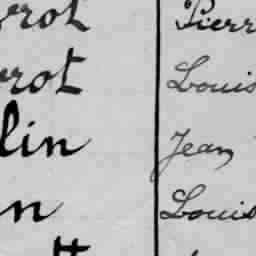 rrot Pierr
rrot Louis
lin Jean
n Louis
tt